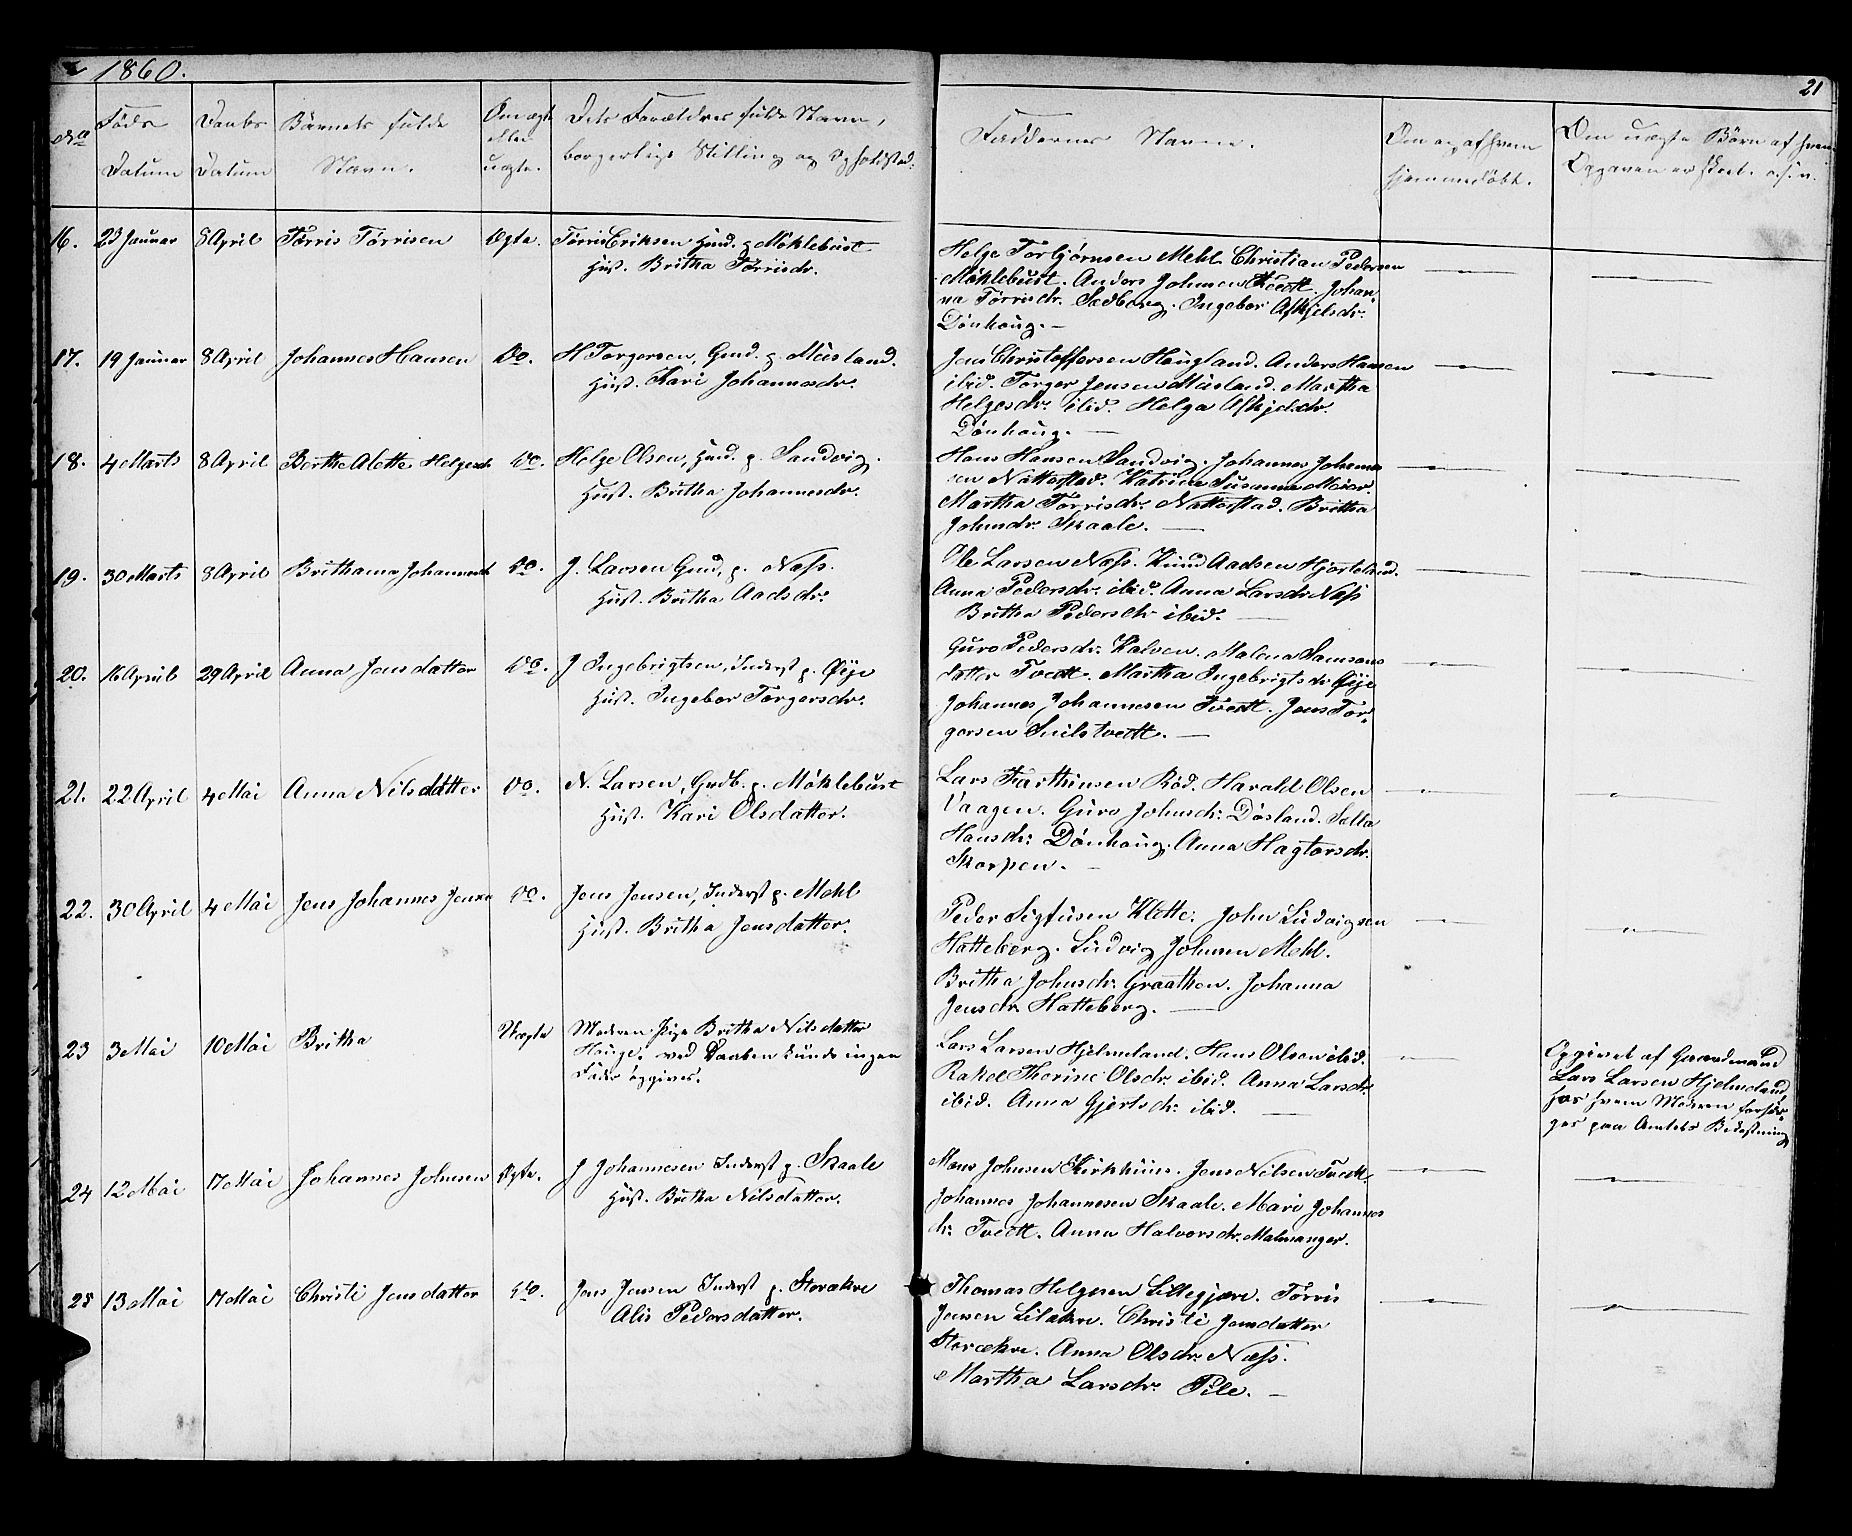 1860.
21
No
Føds Datum
Daabs Datum
Barnets fulde Navn.
Om ægte eller uægte.
Dets Forældres fulde Navn, borgerlige Stilling og Opholdsted.
Faddernes Navne.
Om og af hvem hjemmedøbt.
Om uægte Børn af hvem Opgaven er skeet. o.s.v.
16. 23 Januar 8 April Tørris Tørrisen Ægte. Tørris Eriksen Husmd. p. Møklebust
Hust. Britha Tørrisdr.
Helge Torbjørnsen Mehl. Christian Pedersen
Møklebust. Anders Johnsen Tvedt. Johan-
na Tørrisdr. Sædberg. Ingebor Askjelsdr.
Dönhaug. —
17. 19 Januar 8 April Johannes Hansen Do. H Torgersen, Gmd. p. Müsland.
Hust. Kari Johannesdr.
Jens Christoffersen Haugland. Anders Hansen
ibid. Torger Jensen Müsland. Martha
Helgesdr. ibid. Helga Askjelsdr.
Dönhaug. —
18. 4 Marts 8 April Berthe Alette Helgesdr Do. Helge Olsen, Husmd. p. Sandvig.
Hust. Britha Johannesdr.
Hans Hansen Sandvig. Johannes Johannes-
sen Nattestad. Katrina Susanna Meier.
Martha Tørrisdr. Nattestad. Britha
Johnsdr. Skaale. —
19. 30 Marts 8 April Brithanna Johannesdr Do. J. Larsen Gmd, p. Næss.
Hust. Britha Aadsdr.
Ole Larsen Næss. Knud Aadsen Hjorteland.
Anna Pedersdr. ibid. Anna Larsdr Næss
Britha Pedersdr ibid. —
20. 16 April 29 April Anna Jensdatter Do. J Ingebrigtsen, Inderst p. Øije
Hust. Ingebor Torgersdr.
Guro Pedersdr. Kalven. Malena Samsons
datter Tvedt. Martha Ingebrigtsdr Øije
Johannes Johannesen Tvedt. Jens Tor-
gersen Snilstvedt. —
21. 22 April 4 Mai Anna Nilsdatter Do. N. Larsen, Grdb. p. Møklebust
Hust. Kari Olsdatter.
Lars Farthinsen Röd. Harald Olsen
Vaagen. Guro Johnsdr. Døsland. Sella
Hansdr. Dönhaug. Anna Hagtorsdr.
Skorpen. —
22. 30 April 4 Mai Jens Johannes Jensen Do. Jens Jensen, Inderst p. Mehl
Hust. Britha Jensdatter.
Peder Sigfusen Klette. John Ludvigsen
Hatteberg. Ludvig Johnsen Mehl.
Britha Johnsdr. Graathen. Johanna
Jensdr. Hatteberg. —
23 3 Mai 10 Mai Britha Uægte Moderen Pige Britha Nilsdatter
Hauge. ved Daaben kunde ingen
Fader opgives.
Lars Larsen Hjelmeland. Hans Olsen ibid.
Rakel Therine Olsdr. ibid. Anna Larsdr.
ibid. Anna Gjertsdr. ibid. —
Opgivet af Gaardmand
Lars Larsen Hjelmeland
hos hvem Moderen forsör-
ges paa Amtets Bekostning
24 12 Mai 17 Mai Johannes Johnsen Ægte. J Johannesen Inderst p. Skaale
Hust. Britha Nilsdatter.
Mons Johnsen Kirkhuus. Jens Nilsen Tvedt
Johannes Johannesen Skaale. Mari Johannes
dr. Tvedt. Anna Halvorsdr. Malmanger.
25 13 Mai 17 Mai Christi Jensdatter Do. Jens Jensen Inderst p. Storækre
Alis Pedersdatter.
Thomas Helgesen Lillegjære. Tørris
Jensen Lilækre. Christi Jensdatter
Storækre. Anna Olsdr. Næss.
Martha Larsdr. Pile. —